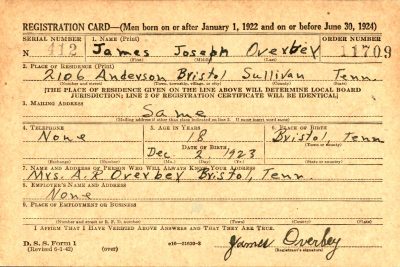 REGISTRATION CARD—(Men born on or after January 1, 1922 and on or before June 30, 1924)
SERIAL NUMBER 1. NAME (Print) ORDER NUMBER
N 412 James Joseph Overbey 11709
(First) (Middle) (Last)
2. PLACE OF RESIDENCE (Print)
2106 Anderson Bristol Sullivan Tenn.
(Number and street) (Town, township, village, or city) (County) (State)
[THE PLACE OF RESIDENCE GIVEN ON THE LINE ABOVE WILL DETERMINE LOCAL BOARD
JURISDICTION; LINE 2 OF REGISTRATION CERTIFICATE WILL BE IDENTICAL]
3. MAILING ADDRESS
Same
[Mailing address if other than place indicated on line 2. If same insert word same]
4. TELEPHONE 5. AGE IN YEARS 6. PLACE OF BIRTH
None 18 Bristol
DATE OF BIRTH (Town or county)
Dec 2, 1923 Tenn.
(Exchange) (Number) (Mo.) (Day) (Yr.) (State or country)
7. NAME AND ADDRESS OF PERSON WHO WILL ALWAYS KNOW YOUR ADDRESS
Mrs. Overbey Bristol, Tenn.
8. EMPLOYER'S NAME AND ADDRESS
None
9. PLACE OF EMPLOYMENT OR BUSINESS
(Number and street or R. F. D. number) (Town) (County) (State)
I AFFIRM THAT I HAVE VERIFIED ABOVE ANSWERS AND THAT THEY ARE TRUE.
D. S. S. Form 1
(Revised 6-1-42) (over) 16—21630-2 James Overbey
(Registrant's signature)